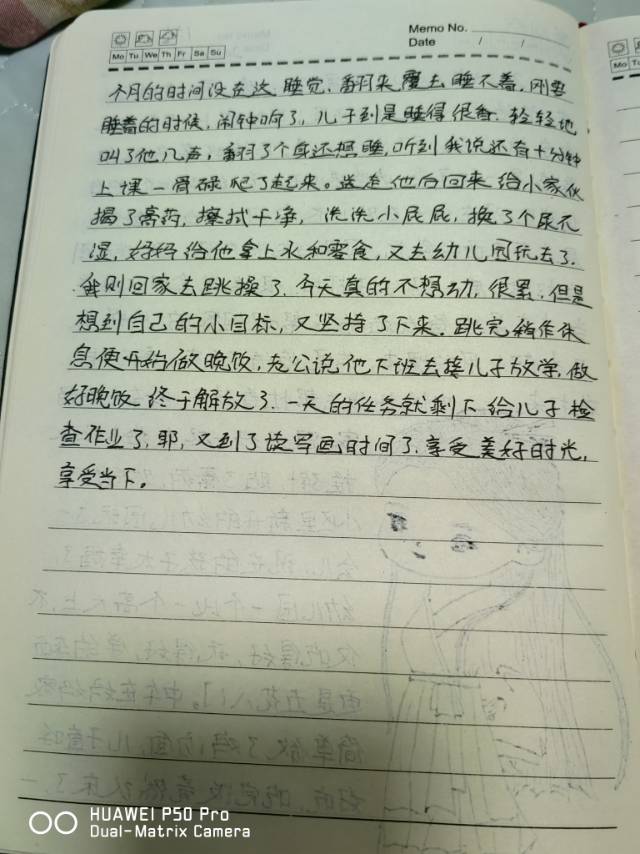 Memo No.
Date / /
Mo Tu We Th Fr Sa Su
个月的时间没在这睡觉,翻来覆去睡不着,刚要
睡着的时候,闹钟响了,儿子到是睡得很香,轻轻地
叫了他几声,翻了个身还想睡,听到我说还有十分钟
上课一骨碌爬了起来。送走他后回来给小家伙
揭了膏药,擦拭干净,洗洗小屁屁,换了个尿不
湿,好好给他拿上水和零食,又去幼儿园玩去了.
我则回家去跳操了.今天真的不想动,很累.但是
想到自己的小目标,又坚持了下来.跳完稍作休
息便开始做晚饭,老公说他下班去接儿子放学,做
好晚饭终于解放了.一天的任务就剩下给儿子检
查作业了,耶,又到了读写画时间了.享受美好时光,
享受当下。
HUAWEI P50 Pro
Dual-Matrix Camera